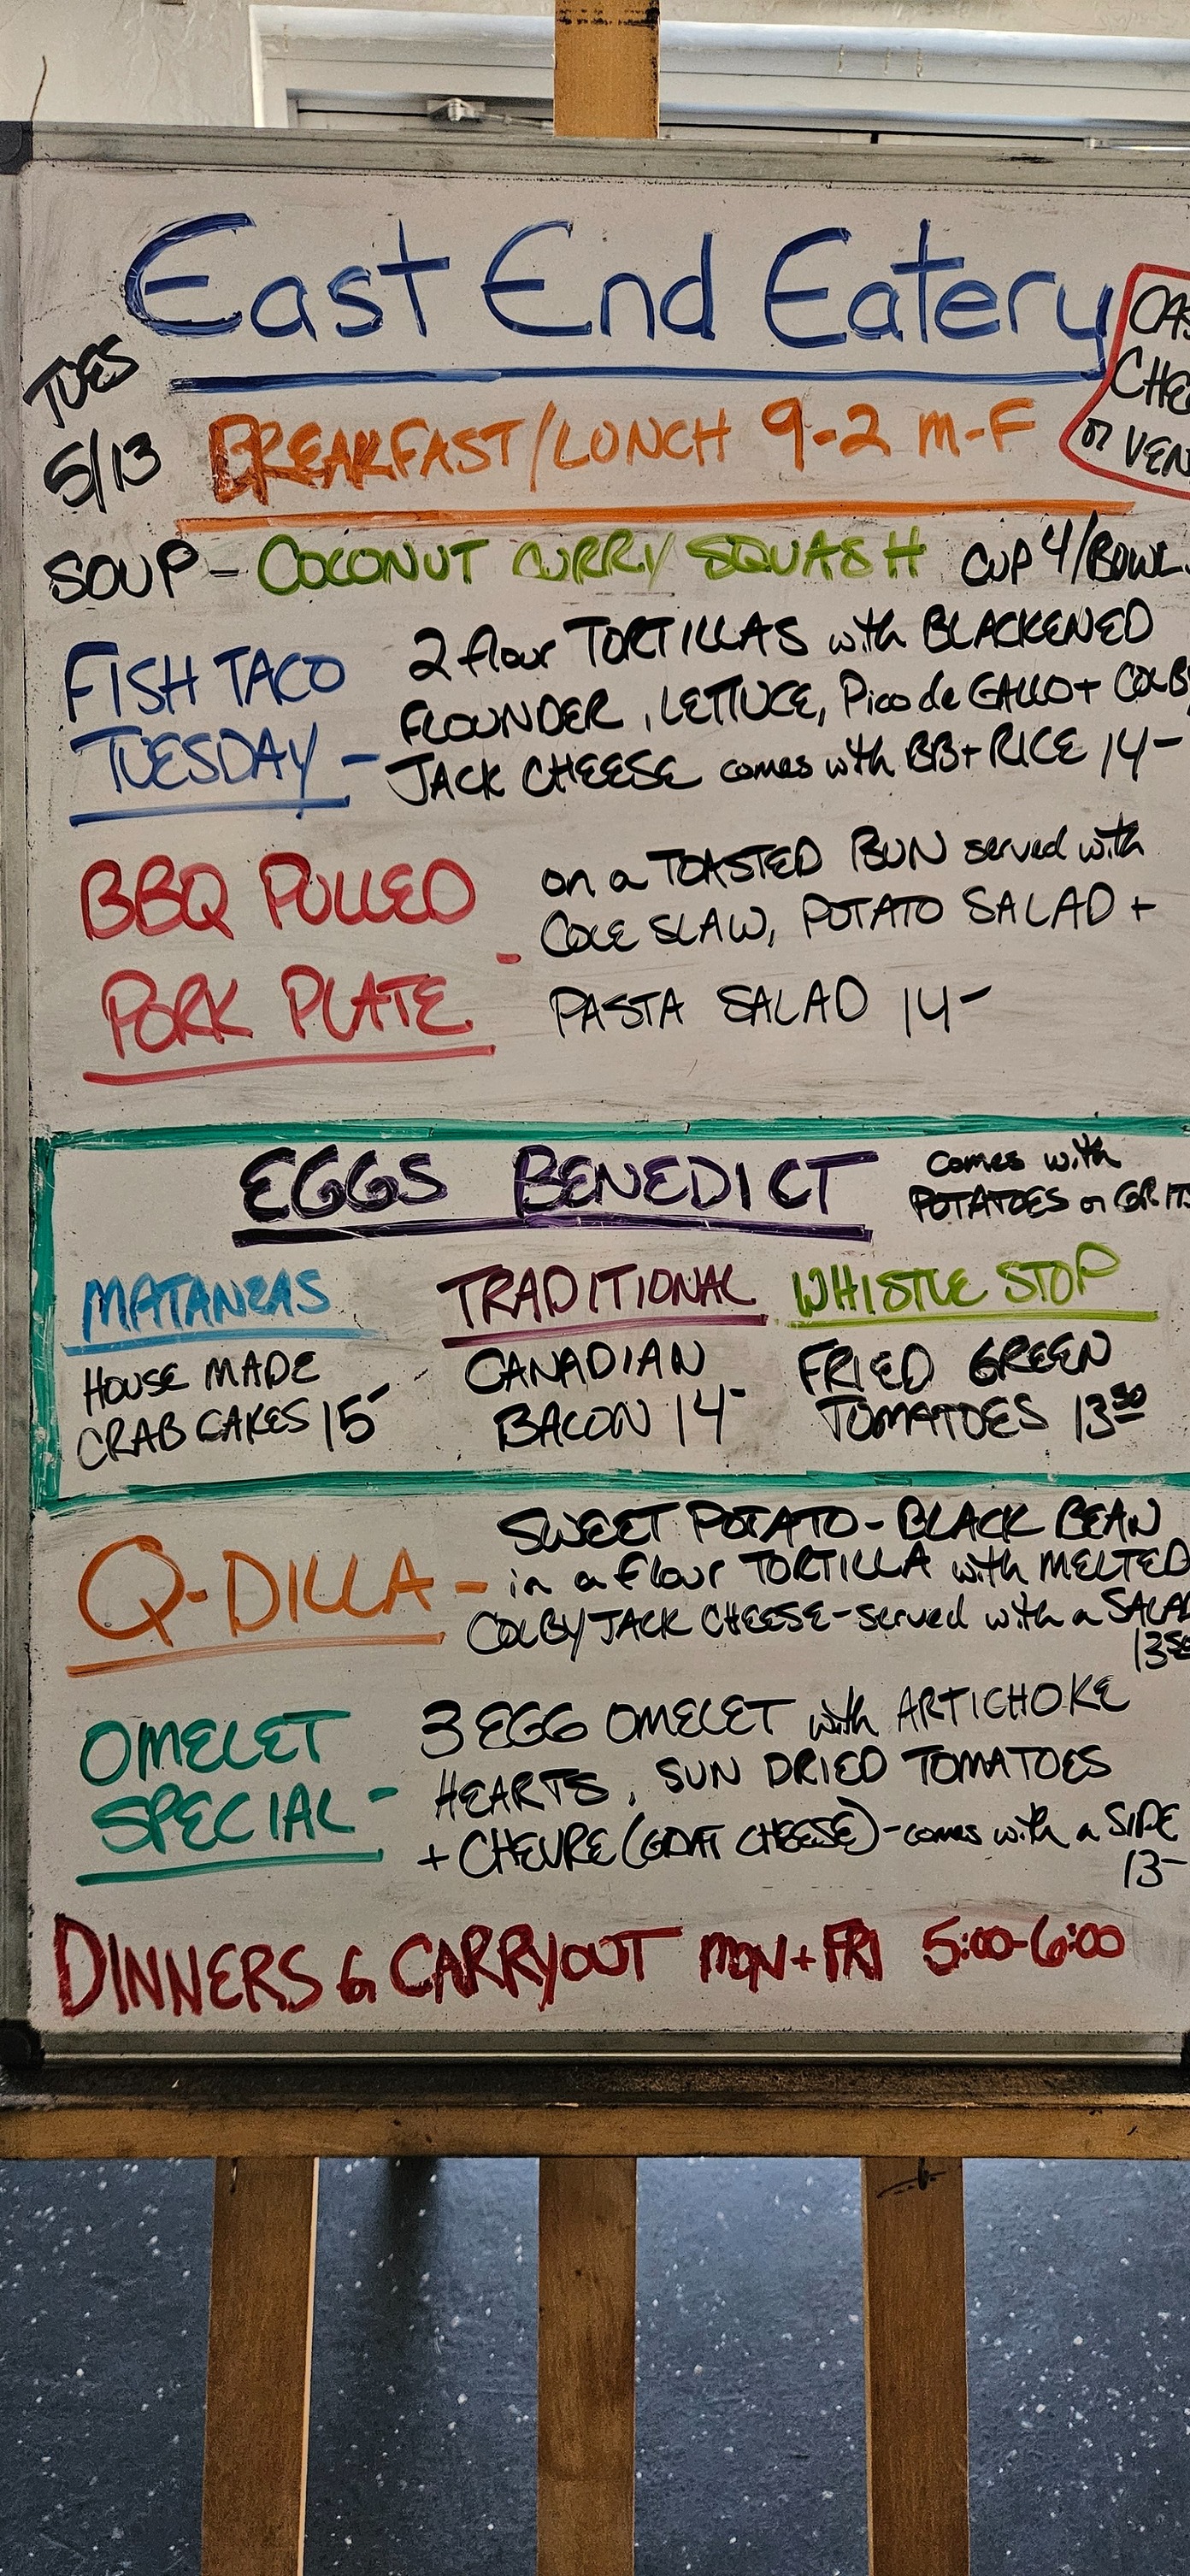 East End Eatery
TUES
5/13
BREAKFAST/LUNCH 9-2 M-F
or
SOUP - COCONUT CURRY SQUASH CUP 4/BOWL
FISH TACO
TUESDAY -
2 flour TORTILLAS with BLACKENED
FLOUNDER, LETTUCE, Pico de GALLO + COLBY
JACK CHEESE comes with BB + RICE 14-
BBQ PULLED
PORK PLATE -
on a TOASTED BUN served with
COLE SLAW, POTATO SALAD +
PASTA SALAD 14-
EGGS BENEDICT
comes with
POTATOES or GRITS
MATANZAS
HOUSE MADE
CRAB CAKES 15-
TRADITIONAL
CANADIAN
BACON 14-
WHISTLE STOP
FRIED GREEN
TOMATOES 13 50
Q-DILLA -
SWEET POTATO - BLACK BEAN
in a flour TORTILLA with MELTED
COLBY JACK CHEESE - served with a SALAD
13 50
OMELET
SPECIAL -
3 EGG OMELET with ARTICHOKE
HEARTS, SUN DRIED TOMATOES
+ CHEVRE (GOAT CHEESE) - comes with a SIDE
13-
DINNERS & CARRYOUT MON + FRI 5:00-6:00